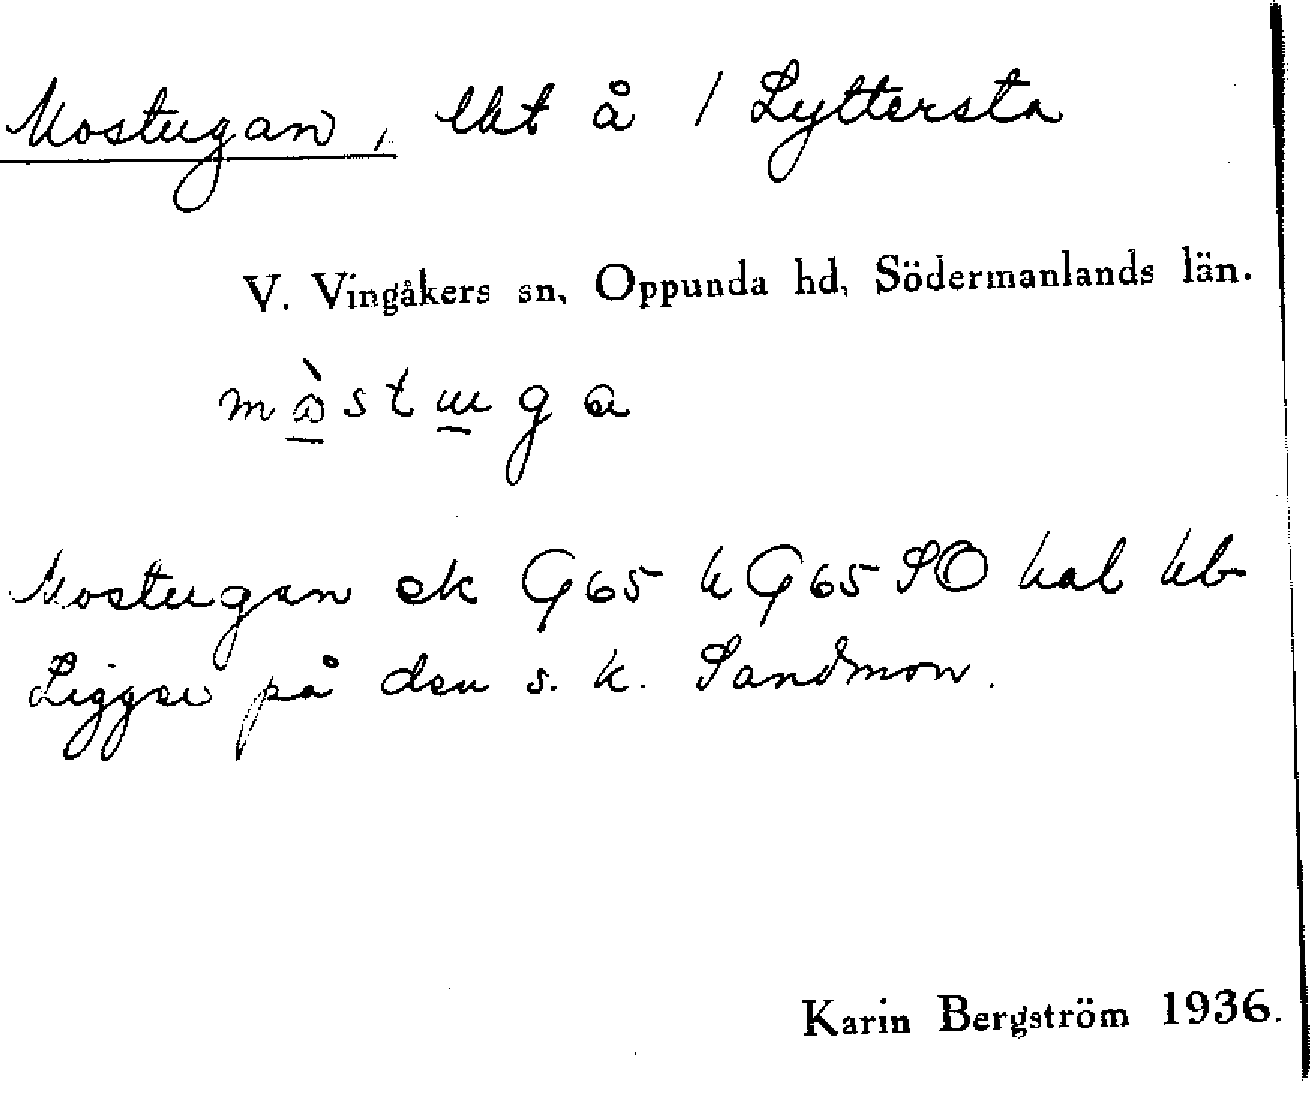 Mostugan, lht å 1 Lyttersta
V. Vingåkers sn, Oppunda hd, Södermanlands län.
mò̲stu̲ga
Mostugan ek G65 h G65 SO hal hb
Ligger på den s. k. Sandmon.
Karin Bergström 1936.